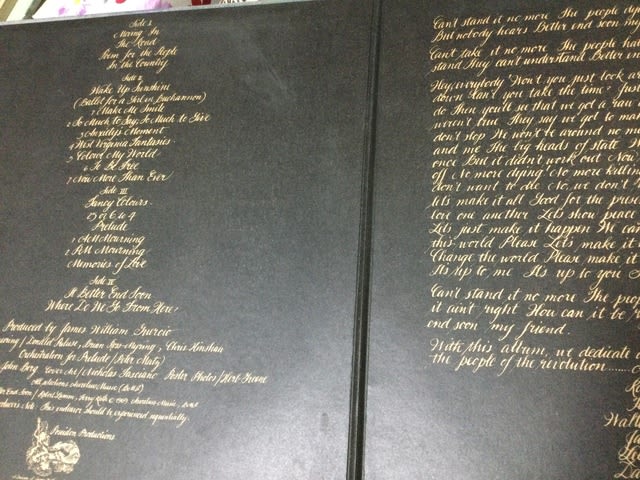 Side I
Moving In
The Road
Poem for the People
In the Country
Side II
Wake Up Sunshine
(Ballet for a Girl in Buchannon)
1 Make Me Smile
2 So Much to Say, So Much to Give
3 Anxiety's Moment
4 West Virginia Fantasies
5 Colour My World
6 To Be Free
7 Now More Than Ever
Side III
Fancy Colours
25 or 6 to 4
Prelude
1 AM Mourning
2 PM Mourning
Memories of Love
Side IV
It Better End Soon
Where Do We Go From Here?
Produced by James William Guercio
Donald Puluse, Brian Ross-Myring, Chris Hinshaw
Orchestration for Prelude / Peter Matz
John Berg Cover Art / Nicholas Fasciano Poster Photos / Herb Greene
All selections
End Soon / Robert Lamm, Terry Kath © 1969
This endeavor should be experienced sequentially.
Poseidon Productions
Can't stand it no more The people dy
But nobody hears Better end soon
Can't take it no more The people ha
stand They can't understand Better end
Hey, everybody Won't you just look a
down Can't you take the time? Just
do Then you'll see that we got a
won't But they say we got to ma
don't stop We won't be around no m
and me The big heads of state
once But it didn't work out Now
off No more dying No more killin
don't want to die No, we don't
Lets make it all Good for the
love one another Lets show peace
Lets just make it happen We can
this world Please Lets make it
Change the world Please make it
It's up to me It's up to you
Can't stand it no more The peo
it ain't right How can it be
end soon my friend.
With this album, we dedicate
the people of the revolution.......
Walt
Da